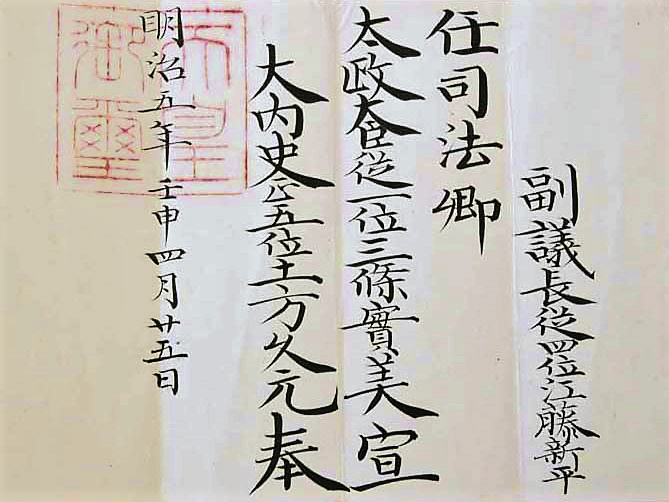 副議長從四位江藤新平
任司法卿
太政大臣從一位三條實美宣
大內史正五位土方久元奉
明治五年壬申四月廿五日
天皇
御璽